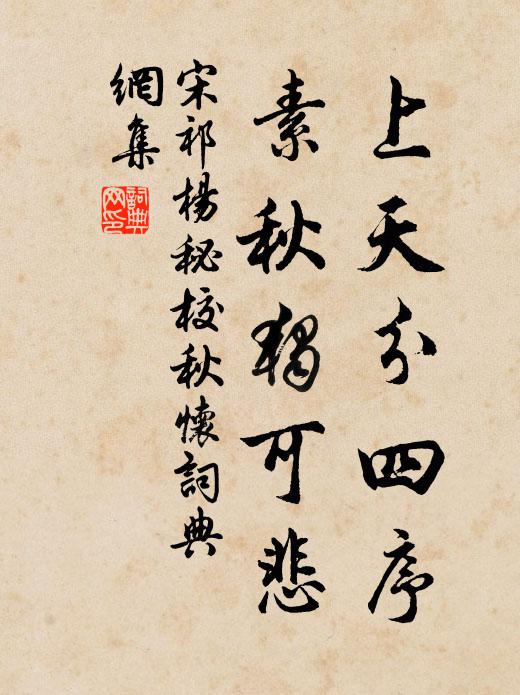 上天分四序
素秋獨可悲
宋祁楊秘校秋懷詞典
網集
詞典
网印